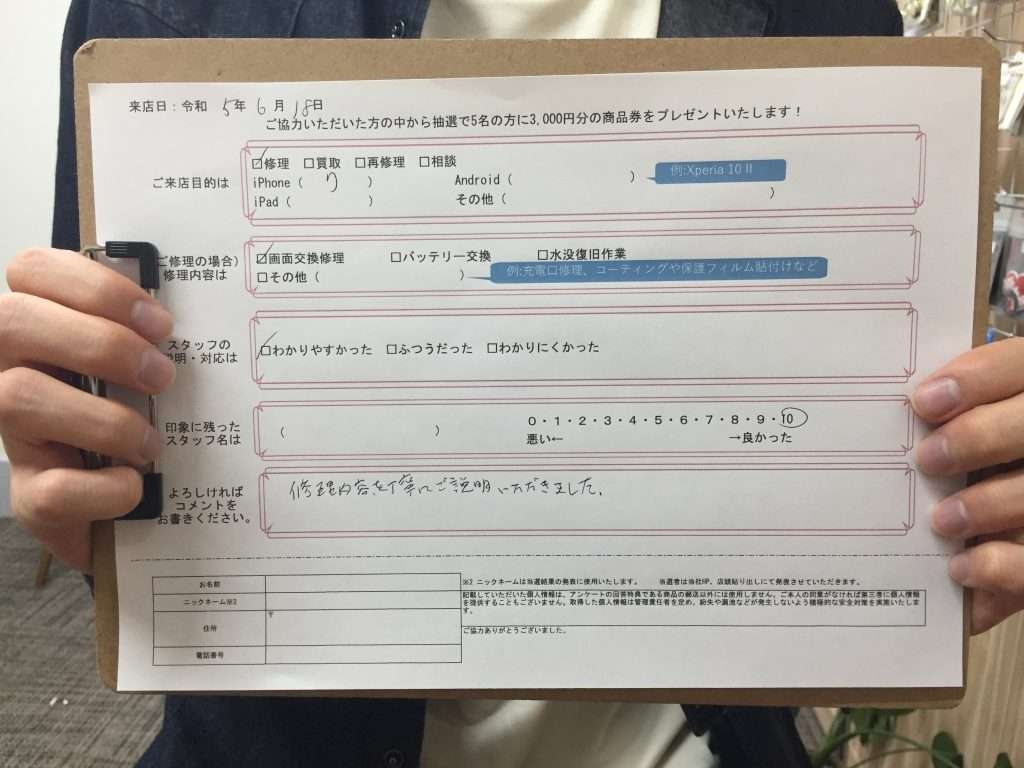 来店日：令和 5年 6月 18日
ご協力いただいた方の中から抽選で5名の方に3,000円分の商品券をプレゼントいたします！
ご来店目的は
☑修理 □買取 □再修理 □相談
iPhone（ 7 ） Android（ ） 例:Xperia 10Ⅱ
iPad（ ） その他（ ）
ご修理の場合）
修理内容は
☑画面交換修理 □バッテリー交換 □水没復旧作業
□その他（ ） 例:充電口修理、コーティングや保護フィルム貼付けなど
スタッフの
説明・対応は
☑わかりやすかった □ふつうだった □わかりにくかった
印象に残った
スタッフ名は
（ ）
0・1・2・3・4・5・6・7・8・9・10
悪い← →良かった
よろしければ
コメントを
お書きください。
修理内容を丁寧にご説明いただきました。
お名前
ニックネーム※2
住所 〒
電話番号
※2 ニックネームは当選結果の発表に使用いたします。 当選者は当社HP、店頭貼り出しにて発表させていただきます。
記載していただいた個人情報は、アンケートの回答特典である商品の郵送以外には使用しません。ご本人の同意がなければ第三者に個人情報
を提供することもございません。取得した個人情報は管理責任者を定め、紛失や漏洩などが発生しないよう積極的な安全対策を実施いたしま
す。
ご協力ありがとうございました。